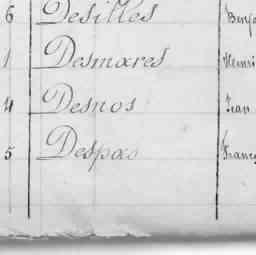 6 Desilles Benj
1 Desmares Henri
4 Desnos Jean
5 Despas Franç